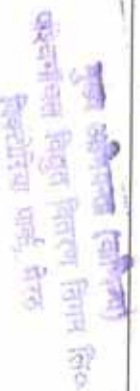 मुख्य अभियन्ता (वाणिज्य)
पश्चिमांचल विद्युत वितरण निगम लि०
विक्टोरिया पार्क, मेरठ